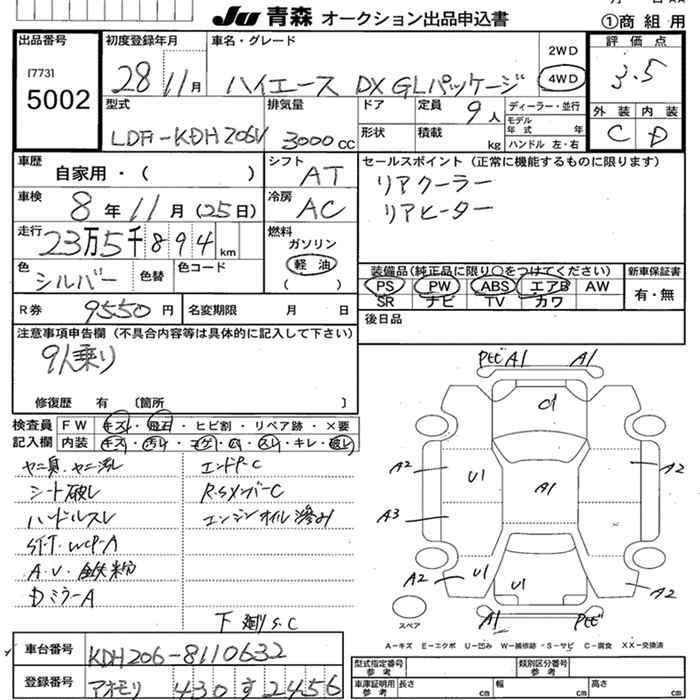 JU 青森 オークション出品申込書
①商 組 用
出品番号
(773)
5002
初度登録年月
28年 11月
車名・グレード
ハイエース DX GLパッケージ
2WD
4WD
評価点
3.5
外装 内装
C D
型式
LDF-KDH206V
排気量
3000cc
ドア
定員
9人
形状
積載
kg
ディーラー・並行
モデル年式 年
ハンドル 左・右
車歴
自家用・( )
シフト
AT
車検
8年11月(25日)
冷房
AC
走行
23万5千894km
燃料
ガソリン
軽油
( )
色
シルバー
色替
色コード
R券
9550円
名変期限 月 日
セールスポイント(正常に機能するものに限ります)
リアクーラー
リアヒーター
装備品(純正品に限り○をつけてください)
PS PW ABS エアB AW
SR ナビ TV カワ
新車保証書
有・無
後日品
注意事項申告欄(不具合内容等は具体的に記入して下さい)
9人乗り
修復歴 有 〔箇所 〕
検査員記入欄
FW キズ・飛石・ヒビ割・リペア跡・×要
内装 キズ・汚レ・コゲ・穴・スレ・キレ・破レ
ヤニ臭・ヤニ汚レ
シート破レ
ハンドルスレ
A.V.鉄粉
DミラーA
エンドP-C
R.SメンバーC
エンジンオイル滲み
下廻りS.C
トビ A1 A1
U1
A2
U1
A1
A2
A3
A2
U1
U1
A2
A1
トビ
スペア
A-キズ E-エクボ U-凹み W-補修跡 S-サビ C-腐食 XX-交換済
車台番号
KDH206-8110632
登録番号
アオモリ 430 す 2456
型式指定番号
参考
類別区分番号
参考
車庫証明用
参考
長さ cm
幅 cm
高さ cm